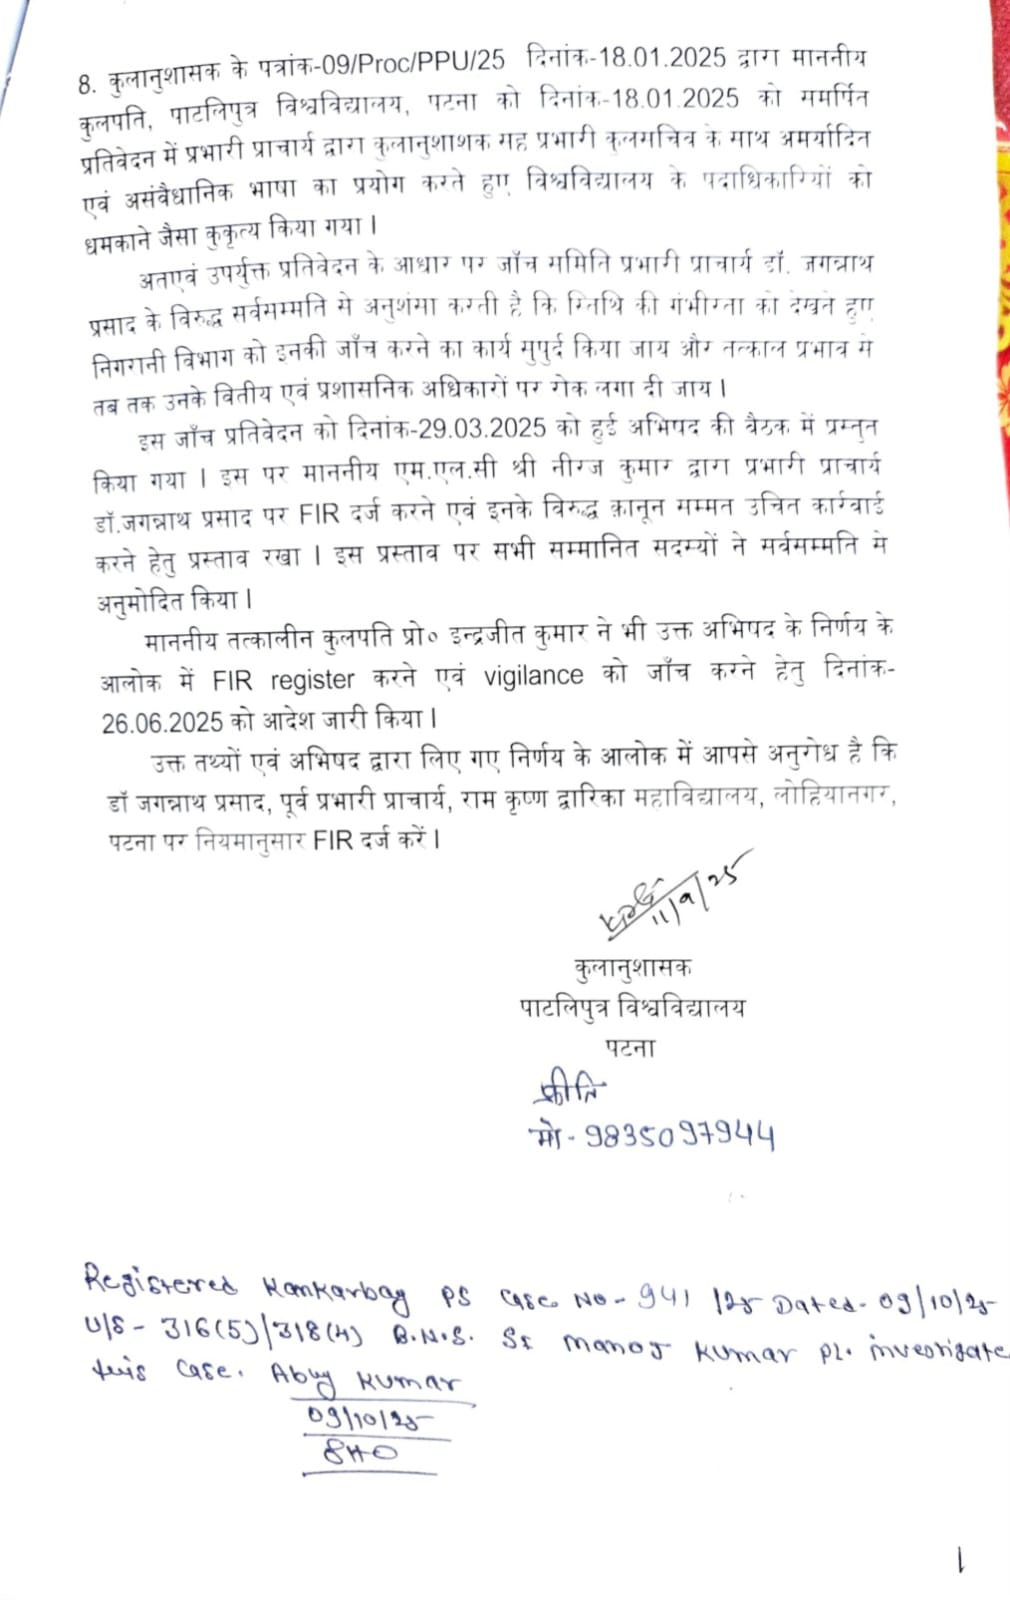 8. कुलानुशासक के पत्रांक-09/Proc/PPU/25 दिनांक-18.01.2025 द्वारा माननीय
कुलपति, पाटलिपुत्र विश्वविद्यालय, पटना को दिनांक-18.01.2025 को समर्पित
प्रतिवेदन में प्रभारी प्राचार्य द्वारा कुलानुशाशक सह प्रभारी कुलसचिव के साथ अमर्यादित
एवं असंवैधानिक भाषा का प्रयोग करते हुए विश्वविद्यालय के पदाधिकारियों को
धमकाने जैसा कुकृत्य किया गया।
अतएवं उपर्युक्त प्रतिवेदन के आधार पर जाँच समिति प्रभारी प्राचार्य डॉ. जगन्नाथ
प्रसाद के विरुद्ध सर्वसम्मति से अनुशंसा करती है कि स्तिथि की गंभीरता को देखते हुए
निगरानी विभाग को इनकी जाँच करने का कार्य सुपुर्द किया जाय और तत्काल प्रभाव से
तब तक उनके वितीय एवं प्रशासनिक अधिकारों पर रोक लगा दी जाय।
इस जाँच प्रतिवेदन को दिनांक-29.03.2025 को हुई अभिषद की बैठक में प्रस्तुत
किया गया। इस पर माननीय एम.एल.सी श्री नीरज कुमार द्वारा प्रभारी प्राचार्य
डॉ.जगन्नाथ प्रसाद पर FIR दर्ज करने एवं इनके विरुद्ध क़ानून सम्मत उचित कार्रवाई
करने हेतु प्रस्ताव रखा। इस प्रस्ताव पर सभी सम्मानित सदस्यों ने सर्वसम्मति से
अनुमोदित किया।
माननीय तत्कालीन कुलपति प्रो० इन्द्रजीत कुमार ने भी उक्त अभिषद के निर्णय के
आलोक में FIR register करने एवं vigilance को जाँच करने हेतु दिनांक-
26.06.2025 को आदेश जारी किया।
उक्त तथ्यों एवं अभिषद द्वारा लिए गए निर्णय के आलोक में आपसे अनुरोध है कि
डॉ जगन्नाथ प्रसाद, पूर्व प्रभारी प्राचार्य, राम कृष्ण द्वारिका महाविद्यालय, लोहियानगर,
पटना पर नियमानुसार FIR दर्ज करें।
11/9/25
कुलानुशासक
पाटलिपुत्र विश्वविद्यालय
पटना
मो - 9835097944
Registered Kankarbag PS Case No - 941/25 Dated - 09/10/25
U/S - 316(5)/318(4) B.N.S. SI Manoj Kumar Pl. investigate
this Case. Abhay Kumar
09/10/25
SHO
1